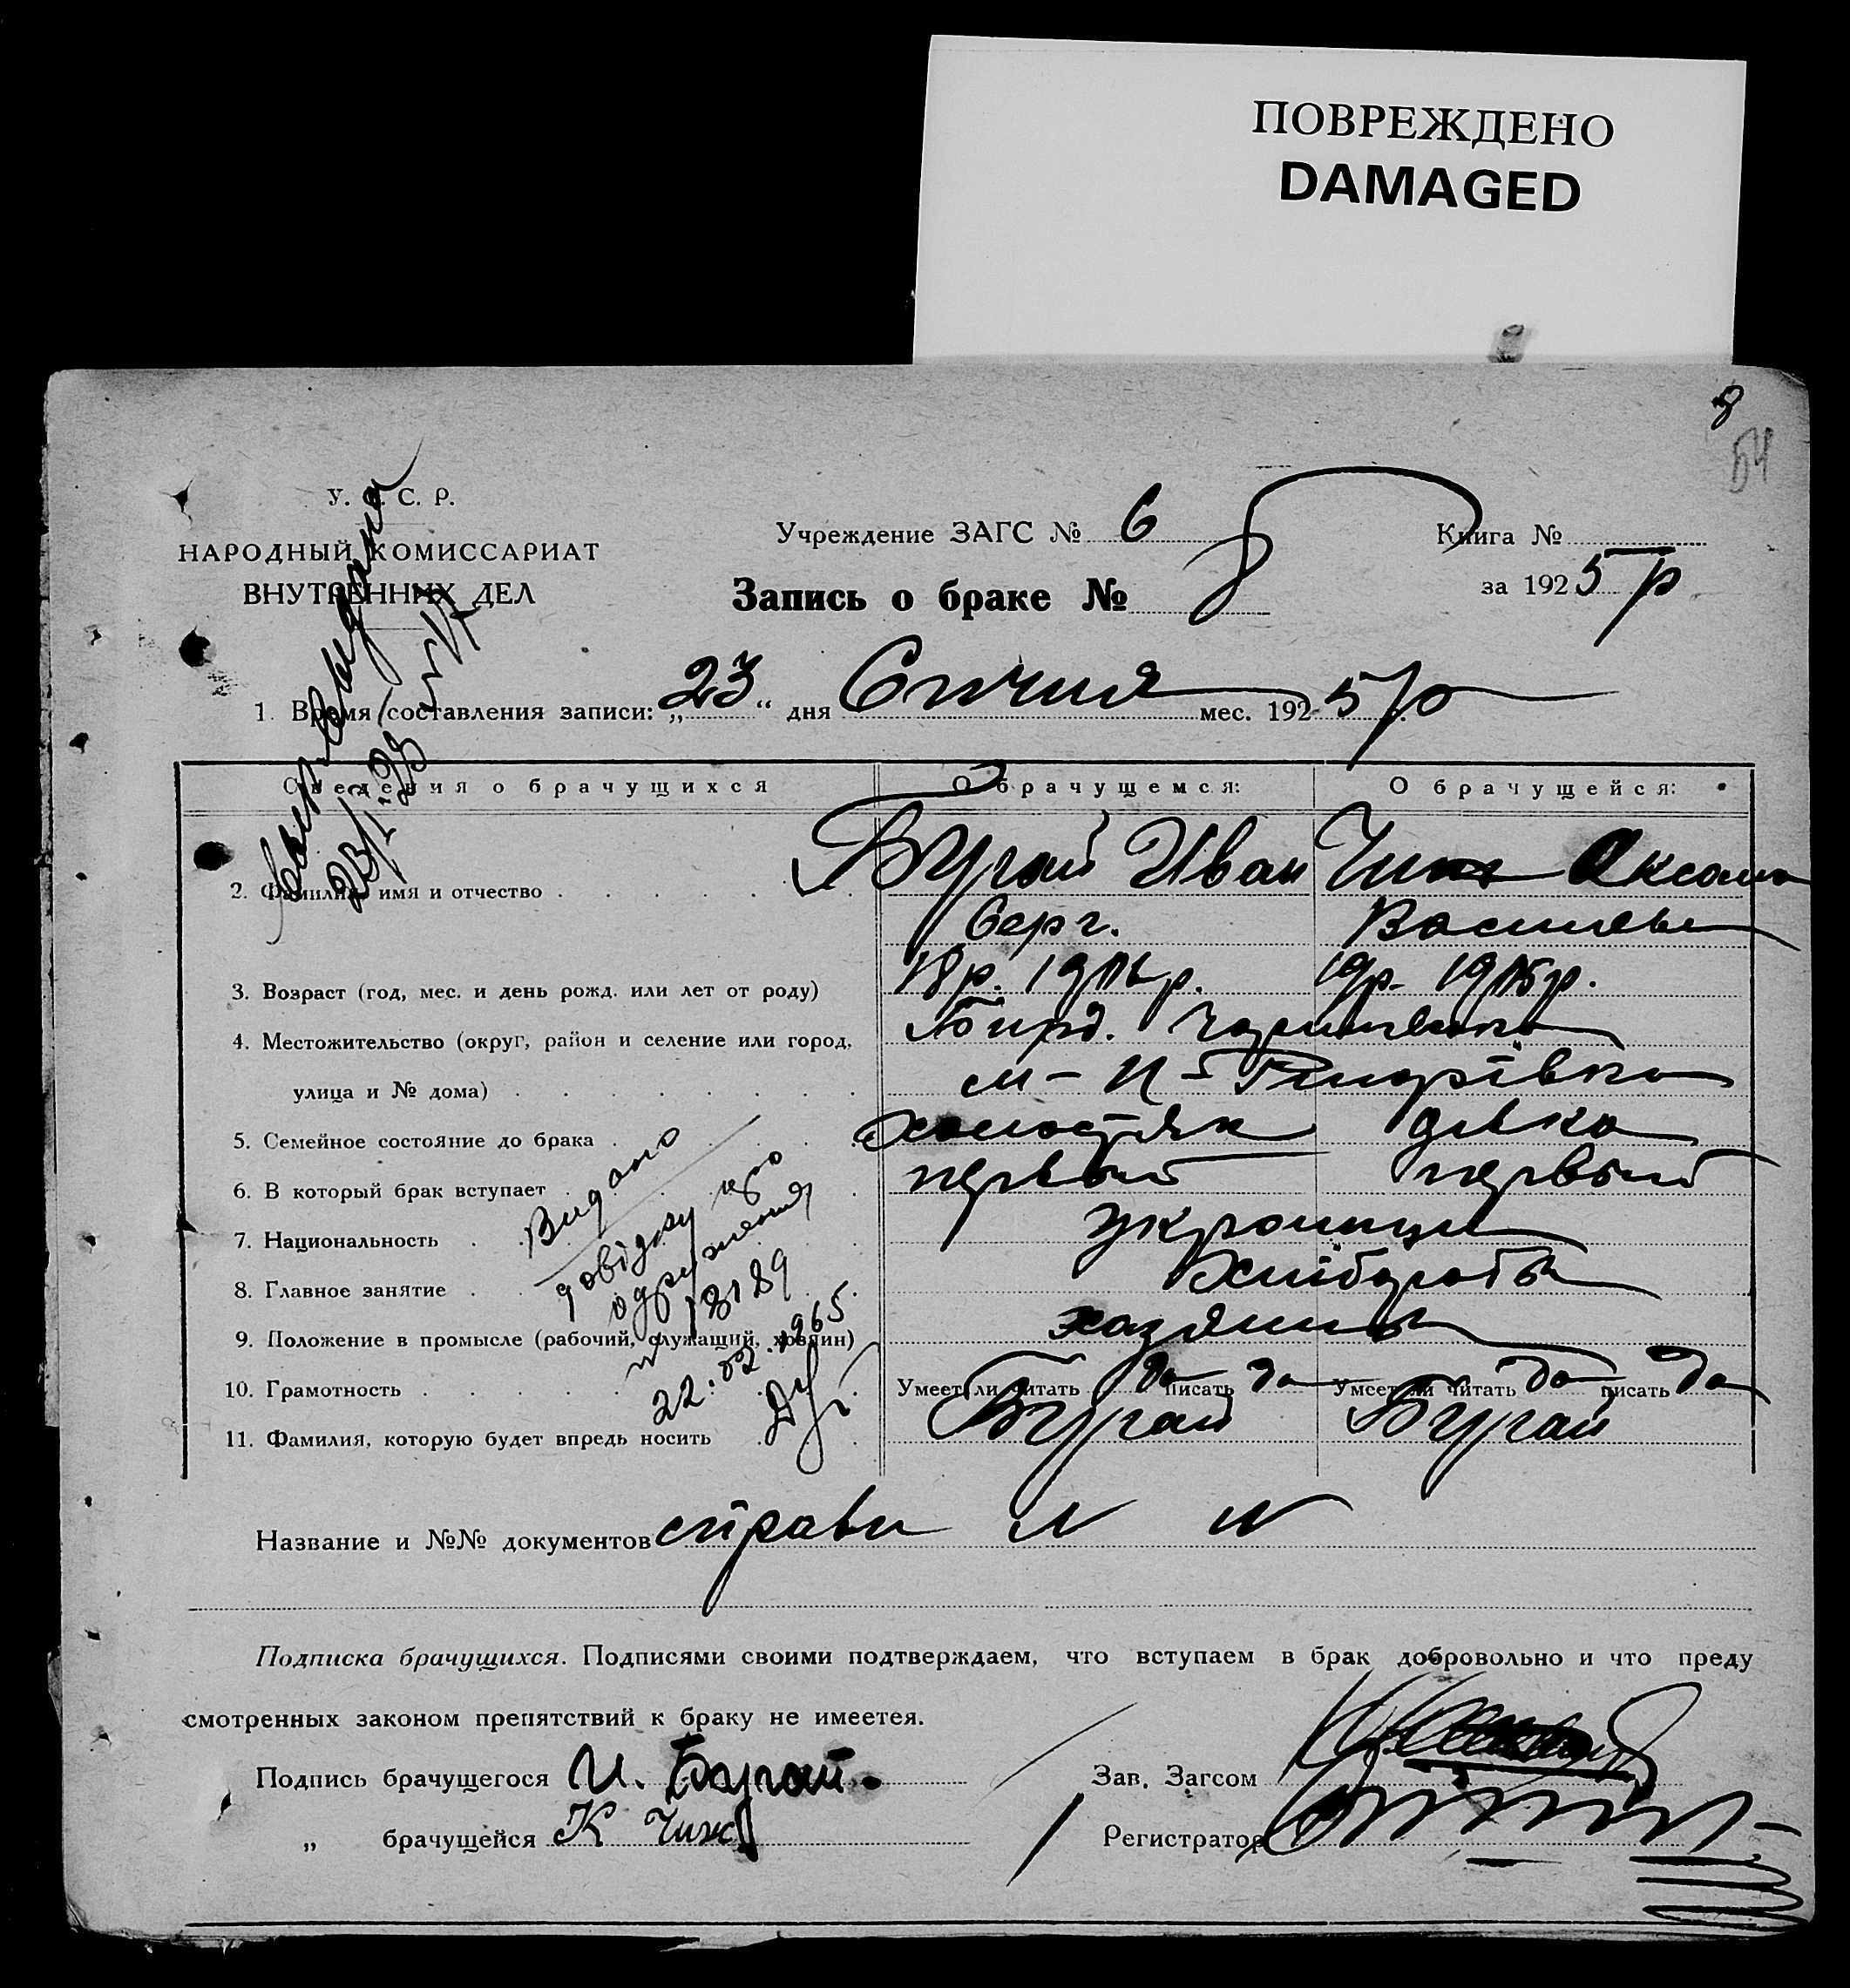 ПОВРЕЖДЕНО
DAMAGED
8
54
У. С. Р.
НАРОДНЫЙ КОМИССАРИАТ
ВНУТРЕННИХ ДЕЛ
Учреждение ЗАГС № 6
Книга №
Запись о браке № 8
за 1925 р
1. Время составления записи: „23“ дня Січня мес. 1925 р
Сведения о брачущихся
О брачущемся:
О брачущейся:
2. Фамилия, имя и отчество . Бугай Иван Чиж Оксана
Серг. Васильев
3. Возраст (год, мес. и день рожд. или лет от роду) 18р. 19р.
4. Местожительство (округ, район и селение или город,
улица и № дома)
5. Семейное состояние до брака . холостяк дівка
6. В который брак вступает . первый первый
7. Национальность . украинци
8. Главное занятие . Хлібороби
9. Положение в промысле (рабочий, служащий, хозяин) хазяины
10. Грамотность . Умеет ли читать да писать да Умеет ли читать да писать да
11. Фамилия, которую будет впредь носить . Бугай Бугай
Видано
довідку про
одруження
18189
22.02.1965
Название и №№ документов справки
Подписка брачущихся. Подписями своими подтверждаем, что вступаем в брак добровольно и что преду
смотренных законом препятствий к браку не имеетея.
Подпись брачущегося И. Бугай.
Зав. Загсом
„ брачущейся К Чиж
Регистратор